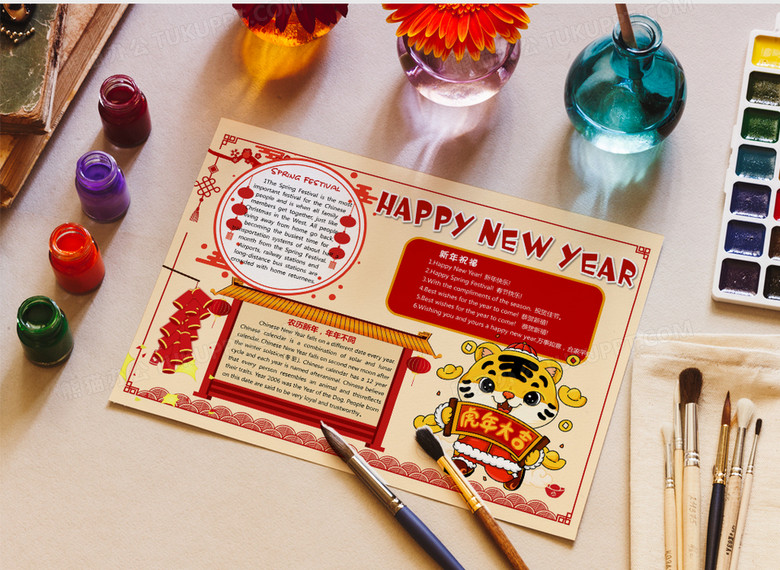 SPRING FESTIVAL
1The Spring Festival is the most
important festival for the Chinese
people and is when all family
members get together, just like
Christmas in the West. All people
living away from home go back,
becoming the busiest time for
transportation systems of about half
month from the Spring Festival.
Airports, railway stations and
long-distance bus stations are
crowded with home returnees.
HAPPY NEW YEAR
新年祝福
1.Happy New Year! 新年快乐!
2.Happy Spring Festival! 春节快乐!
3.With the compliments of the season. 祝贺佳节。
4.Best wishes for the year to come! 恭贺新禧!
5.Best wishes for the year to come! 恭贺新禧!
6.Wishing you and yours a happy new year.万事如意,合家平
农历新年,年年不同
Chinese New Year falls on a different date every year
Chinese calendar is a combination of solar and lunar
calendar. Chinese New Year falls on second new moon after
the winter solstice(冬至). Chinese calendar has a 12 year
cycle and each year is named afteranimal. Chinese believe
that every person resembles an animal and thisreflects
their traits. Year 2006 was the Year of the Dog. People born
on this date are said to be very loyal and trustworthy。
虎年大吉